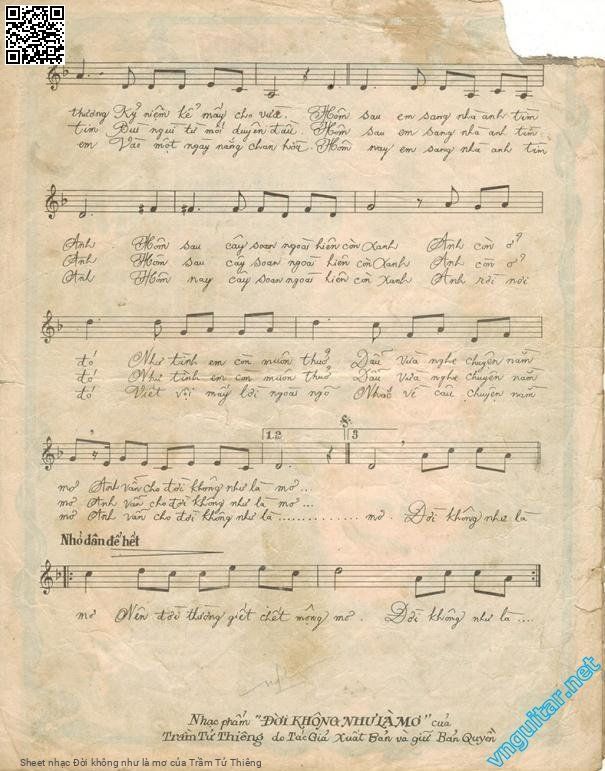 thương Kỷ niệm kể mấy cho vừa. Hôm sau em sang nhà anh tìm
tim Bùi ngùi từ mối duyên đầu. Hôm sau em sang nhà anh tìm
em Vào một ngày nắng chan hòa. Hôm nay em sang nhà anh tìm
Anh. Hôm sau cây soan ngoài hiên còn xanh Anh còn ở?
Anh Hôm sau cây soan ngoài hiên còn xanh Anh còn ở?
Anh Hôm nay cây soan ngoài hiên còn xanh Anh rời nơi
đó Như tình em còn muôn thuở Dẫu vừa nghe chuyện năm
đó Như tình em còn muôn thuở Dẫu vừa nghe chuyện năm
đó Viết vội mấy lời ngoài ngõ Nhắc về câu chuyện năm
1.2. 3
mơ Anh vẫn cho đời không như là mơ...
mơ Anh vẫn cho đời không như là mơ...
mơ Anh vẫn cho đời không như là ............ mơ. Đời không như là
Nhỏ dần để hết
mơ Nên đời thường giết chết mộng mơ. Đời không như là ....
Nhạc phẩm "ĐỜI KHÔNG NHƯ LÀ MƠ" của
Trầm Tử Thiêng do Tác Giả Xuất Bản và giữ Bản Quyền
vnguitar.net
Sheet nhạc Đời không như là mơ của Trầm Tử Thiêng